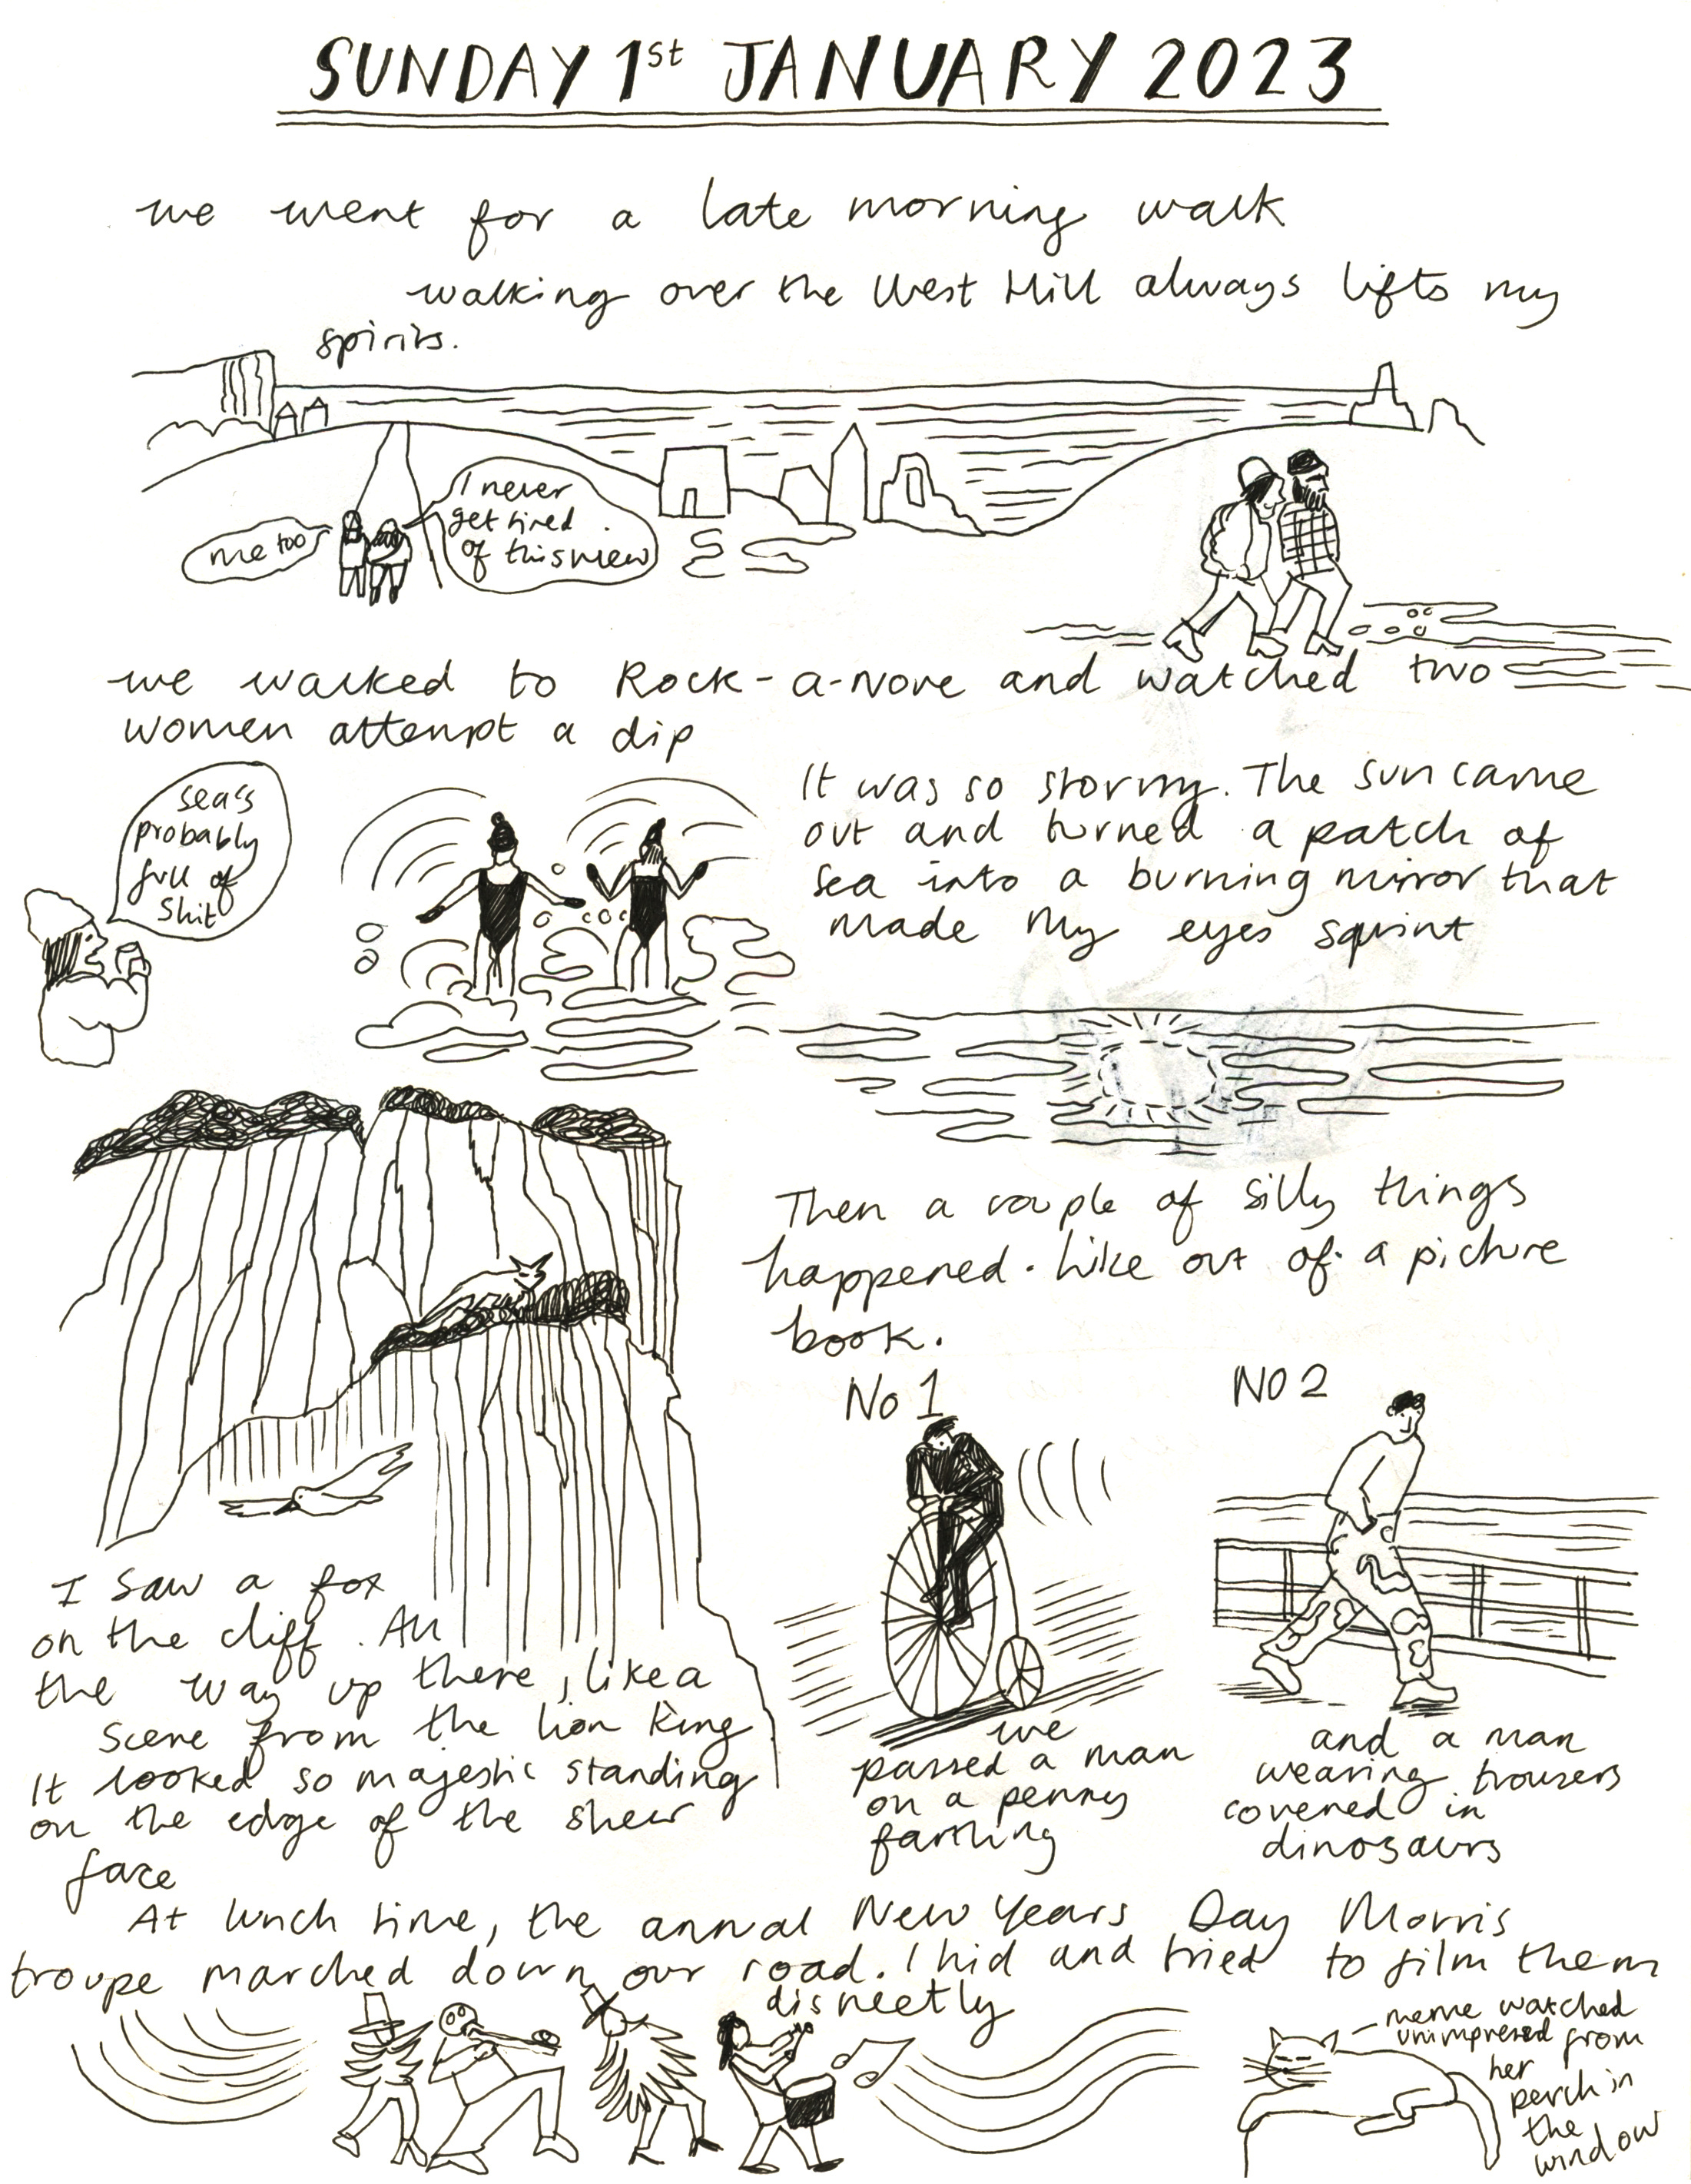 SUNDAY 1st JANUARY 2023
we went for a late morning walk
walking over the West Hill always lifts my
spirits.
me too
I never
get tired
of this view
we walked to Rock-a-Nore and watched two
women attempt a dip
sea's
probably
full of
shit
It was so stormy. The sun came
out and turned a patch of
sea into a burning mirror that
made my eyes squint
I saw a fox
on the cliff. All
the way up there, like a
scene from the lion King
It looked so majestic standing
on the edge of the sheer
face
Then a couple of silly things
happened. Like out of a picture
book.
No 1
we
passed a man
on a penny
farthing
NO 2
and a man
wearing trousers
covered in
dinosaurs
At lunch time, the annual New Years Day Morris
troupe marched down our road. I hid and tried to film them
discreetly
meme watched
unimpressed from
her
perch in
the
window